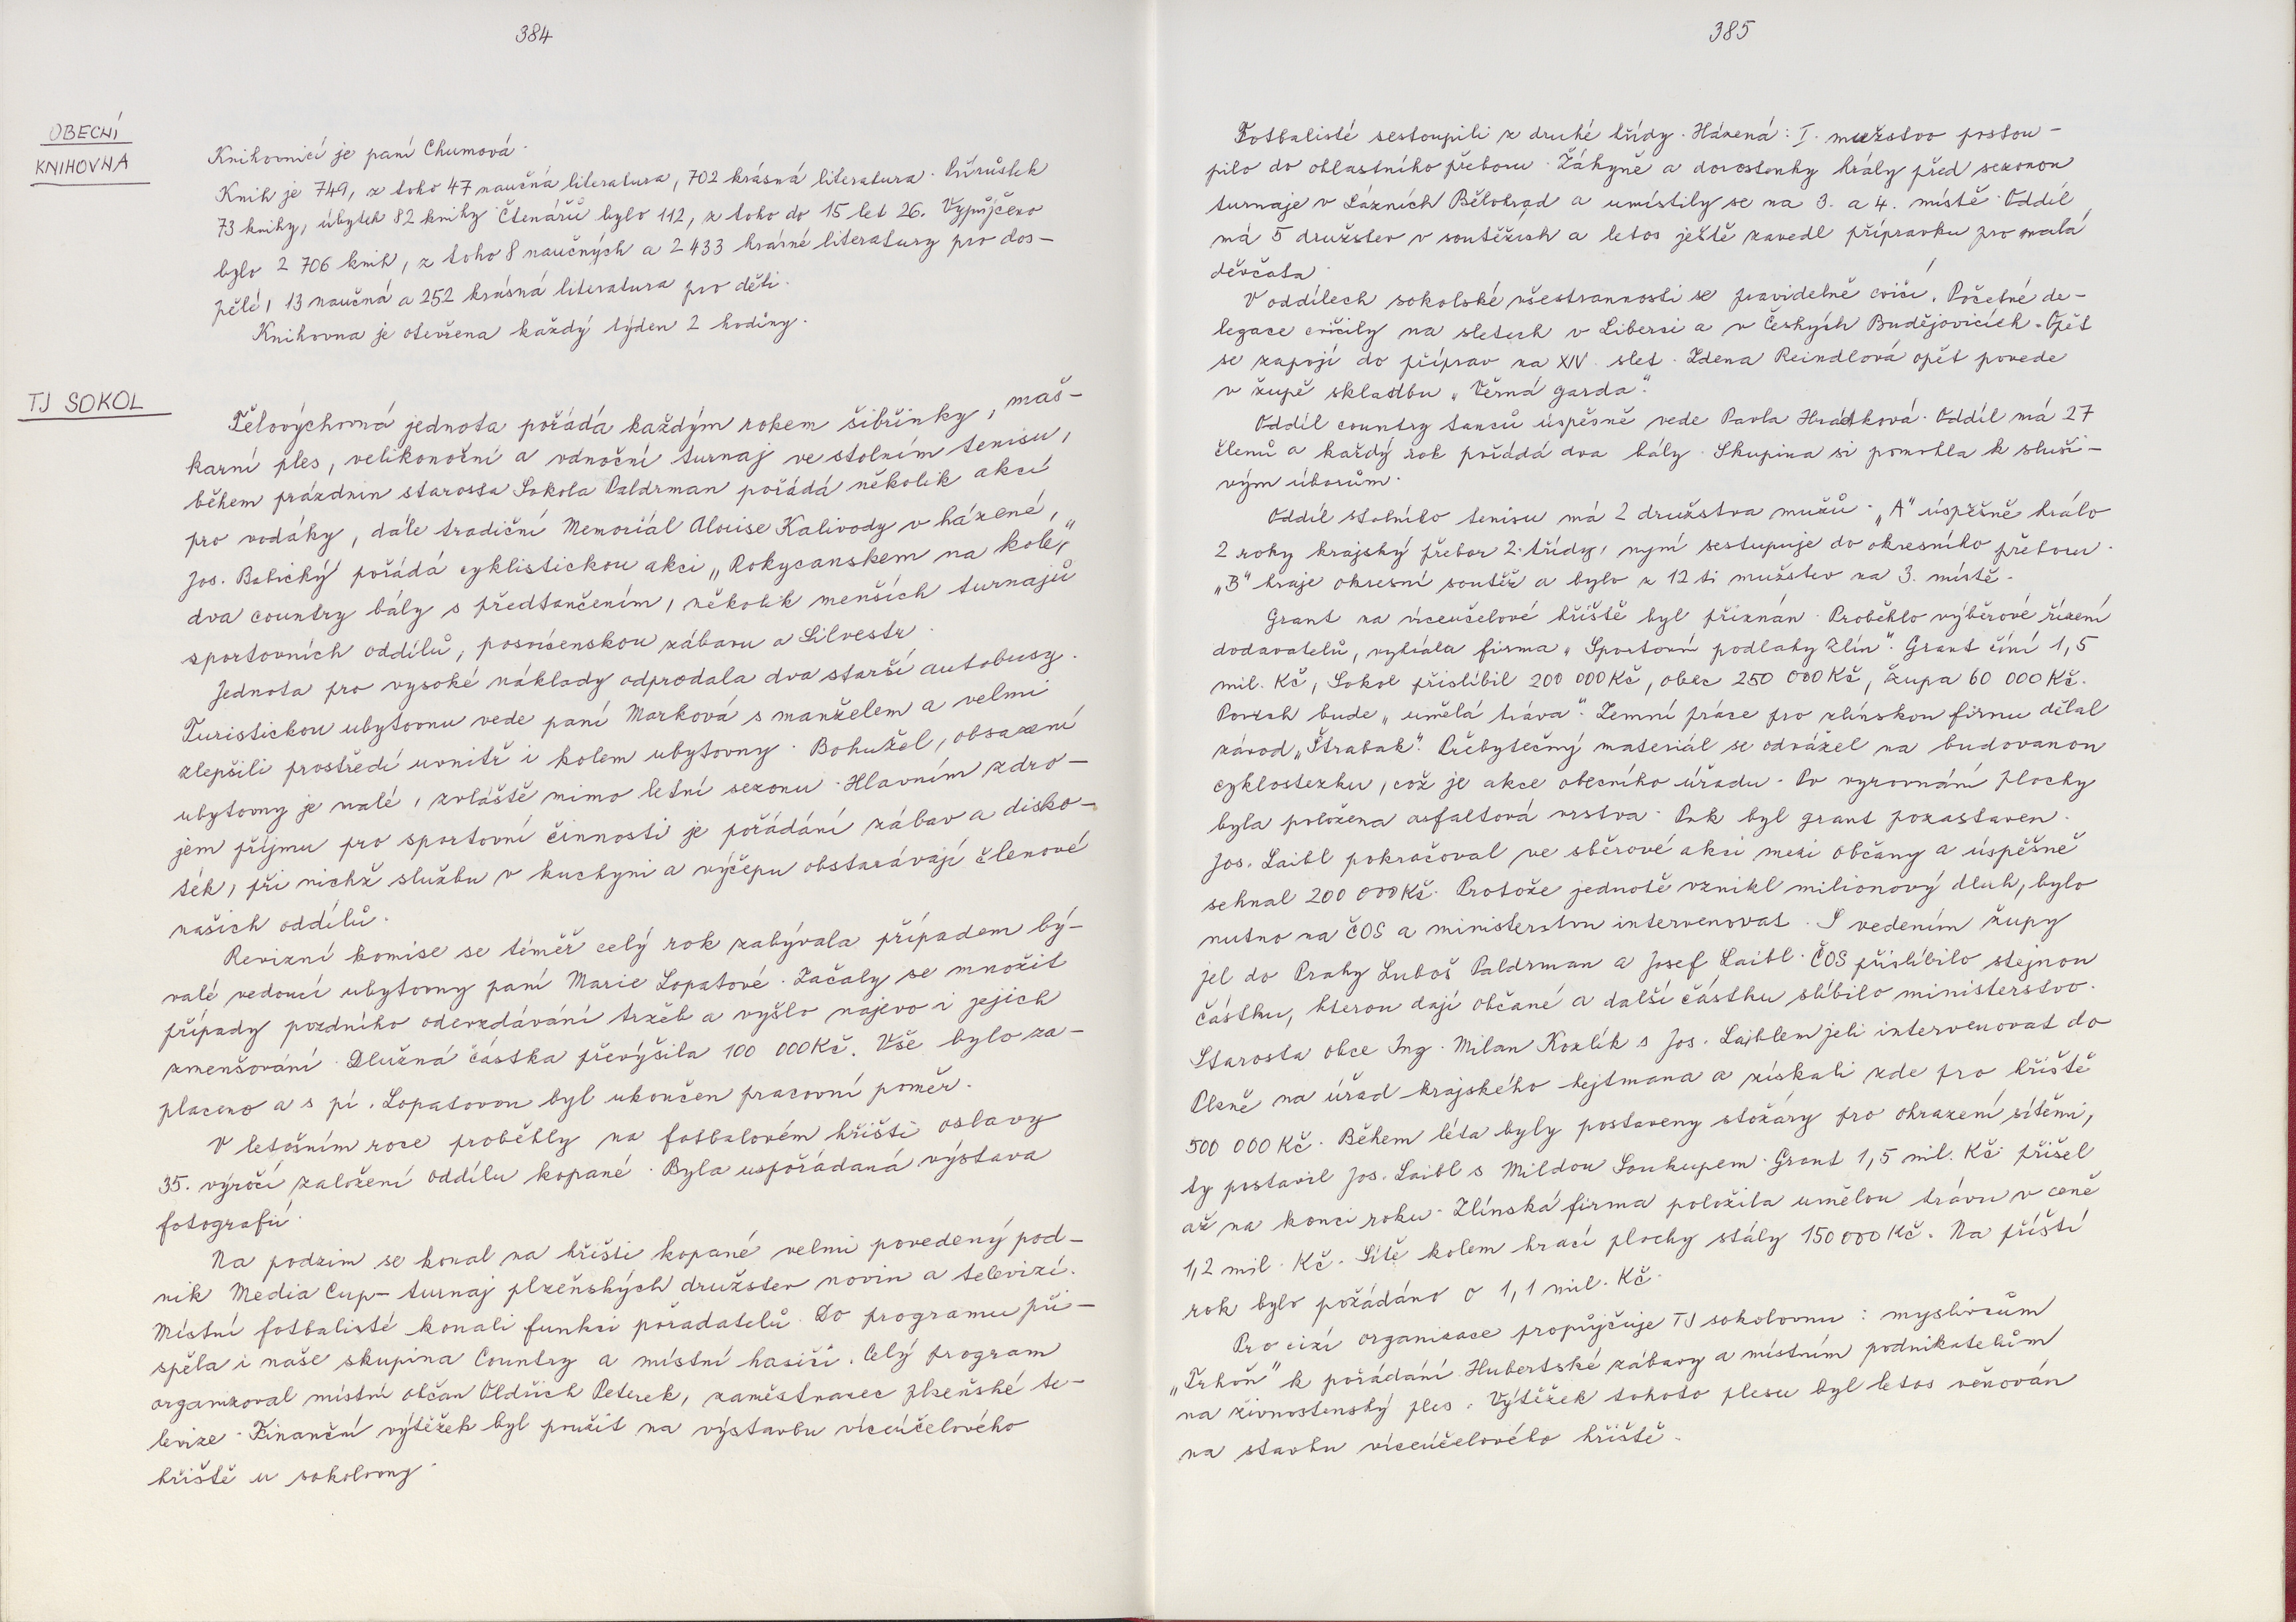 384
OBECNÍ
KNIHOVNA
Knihovnicí je paní Chumová.
Knih je 749, z toho 47 naučná literatura, 702 krásná literatura. Přírůstek
73 knihy, úbytek 82 knihy. Čtenářů bylo 112, z toho do 15 let 26. Vypůjčeno
bylo 2 706 knih, z toho 8 naučných a 2 433 krásné literatury pro dos-
pělé, 13 naučná a 252 krásná literatura pro děti.
Knihovna je otevřena každý týden 2 hodiny.
TJ SOKOL
Tělovýchovná jednota pořádá každým rokem šibřinky, maš-
karní ples, velikonoční a vánoční turnaj ve stolním tenisu,
během prázdnin starosta Sokola Paldrman pořádá několik akcí
pro vodáky, dále tradiční Memoriál Aloise Kalivody v házené,
Jos. Babický pořádá cyklistickou akci „Rokycanskem na kole,"
dva country bály s předtančením, několik menších turnajů
sportovních oddílů, posvícenskou zábavu a Silvestr.
Jednota pro vysoké náklady odprodala dva starší autobusy.
Turistickou ubytovnu vede paní Marková s manželem a velmi
zlepšili prostředí uvnitř i kolem ubytovny. Bohužel, obsazení
ubytovny je malé, zvláště mimo letní sezonu. Hlavním zdro-
jem příjmu pro sportovní činnosti je pořádání zábav a disko-
ték, při nichž službu v kuchyni a výčepu obstarávají členové
našich oddílů.
Revizní komise se téměř celý rok zabývala případem bý-
valé vedoucí ubytovny paní Marie Lopatové. Začaly se množit
případy pozdního odevzdávání tržeb a vyšlo najevo i jejich
zmenšování. Dlužná částka převýšila 100 000 Kč. Vše bylo za-
placeno a s pí. Lopatovou byl ukončen pracovní poměr.
V letošním roce proběhly na fotbalovém hřišti oslavy
35. výročí založení oddílu kopané. Byla uspořádaná výstava
fotografií.
Na podzim se konal na hřišti kopané velmi povedený pod-
nik Media Cup - turnaj plzeňských družstev novin a televizí.
Místní fotbalisté konali funkci pořadatelů. Do programu při-
spěla i naše skupina Country a místní hasiči. Celý program
organizoval místní občan Oldřich Peterek, zaměstnanec plzeňské te-
levize. Finanční výtěžek byl použit na výstavbu víceúčelového
hřiště u sokolovny.
385
Fotbalisté sestoupili z druhé třídy. Házená: I. mužstvo postou-
pilo do oblastního přeboru. Žákyně a dorostenky hrály před sezonou
turnaje v Lázních Bělohrad a umístily se na 3. a 4. místě. Oddíl
má 5 družstev v soutěžích a letos ještě zavedl přípravku pro malá
děvčata.
V oddílech sokolské všestrannosti se pravidelně cvičí. Početné de-
legace cvičily na sletech v Liberci a v Českých Budějovicích. Opět
se zapojí do příprav na XIV. slet. Zdena Reindlová opět povede
v župě skladbu „Věrná garda".
Oddíl country tanců úspěšně vede Pavla Hrádková. Oddíl má 27
členů a každý rok pořádá dva bály. Skupina si pomohla k sluši-
vým úborům.
Oddíl stolního tenisu má 2 družstva mužů. „A" úspěšně hrálo
2 roky krajský přebor 2. třídy, nyní sestupuje do okresního přeboru.
„B" hraje okresní soutěž a bylo z 12 ti mužstev na 3. místě.
Grant na víceúčelové hřiště byl přiznán. Proběhlo výběrové řízení
dodavatelů, vyhrála firma „Sportovní podlahy Zlín". Grant činí 1,5
mil. Kč, Sokol přislíbil 200 000 Kč, obec 250 000 Kč, župa 60 000 Kč.
Povrch bude „umělá tráva". Zemní práce pro zlínskou firmu dělal
závod „Štrabak". Přebytečný materiál se odvážel na budovanou
cyklostezku, což je akce obecního úřadu. Po vyrovnání plochy
byla položena asfaltová vrstva. Pak byl grant pozastaven.
Jos. Laibl pokračoval ve sběrové akci mezi občany a úspěšně
sehnal 200 000 Kč. Protože jednotě vznikl milionový dluh, bylo
nutno na ČOS a ministerstvu intervenovat. S vedením župy
jel do Prahy Luboš Paldrman a Josef Laibl. ČOS přislíbilo stejnou
částku, kterou dají občané a další částku slíbilo ministerstvo.
Starosta obce Ing. Milan Kozlík s Jos. Laiblem jeli intervenovat do
Plzně na úřad krajského hejtmana a získali zde pro hřiště
500 000 Kč. Během léta byly postaveny stožáry pro ohrazení sítěmi,
ty postavil Jos. Laibl s Mildou Soukupem. Grant 1,5 mil. Kč přišel
až na konci roku. Zlínská firma položila umělou trávu v ceně
1,2 mil. Kč. Sítě kolem hrací plochy stály 150 000 Kč. Na příští
rok bylo požádáno o 1,1 mil. Kč.
Pro cizí organizace propůjčuje TJ sokolovnu: myslivcům
„Trhoň" k pořádání Hubertské zábavy a místním podnikatelům
na živnostenský ples. Výtěžek tohoto plesu byl letos věnován
na stavbu víceúčelového hřiště.